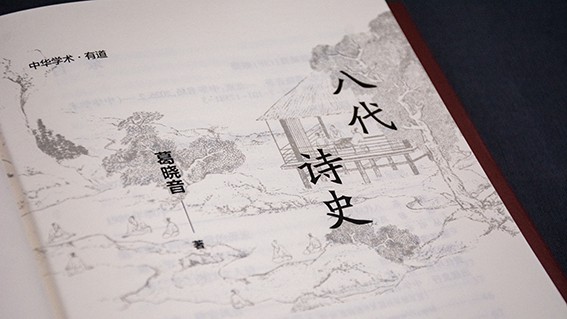 中华学术·有道
八代诗史
葛晓音 著